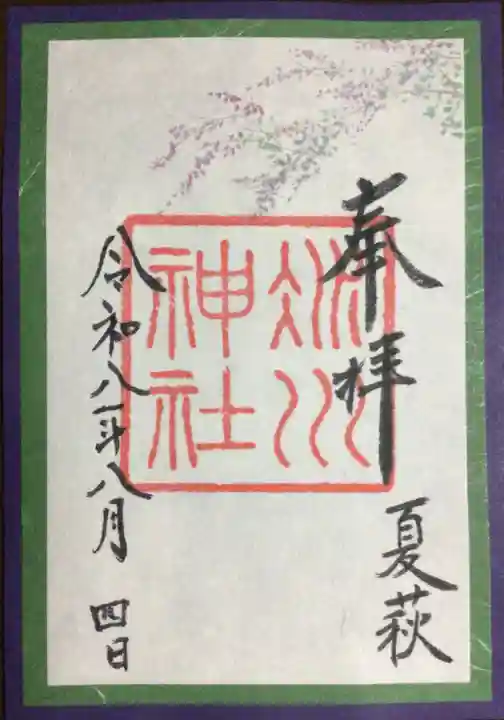 奉拝
夏萩
冰川
神社
令和八年八月 四日